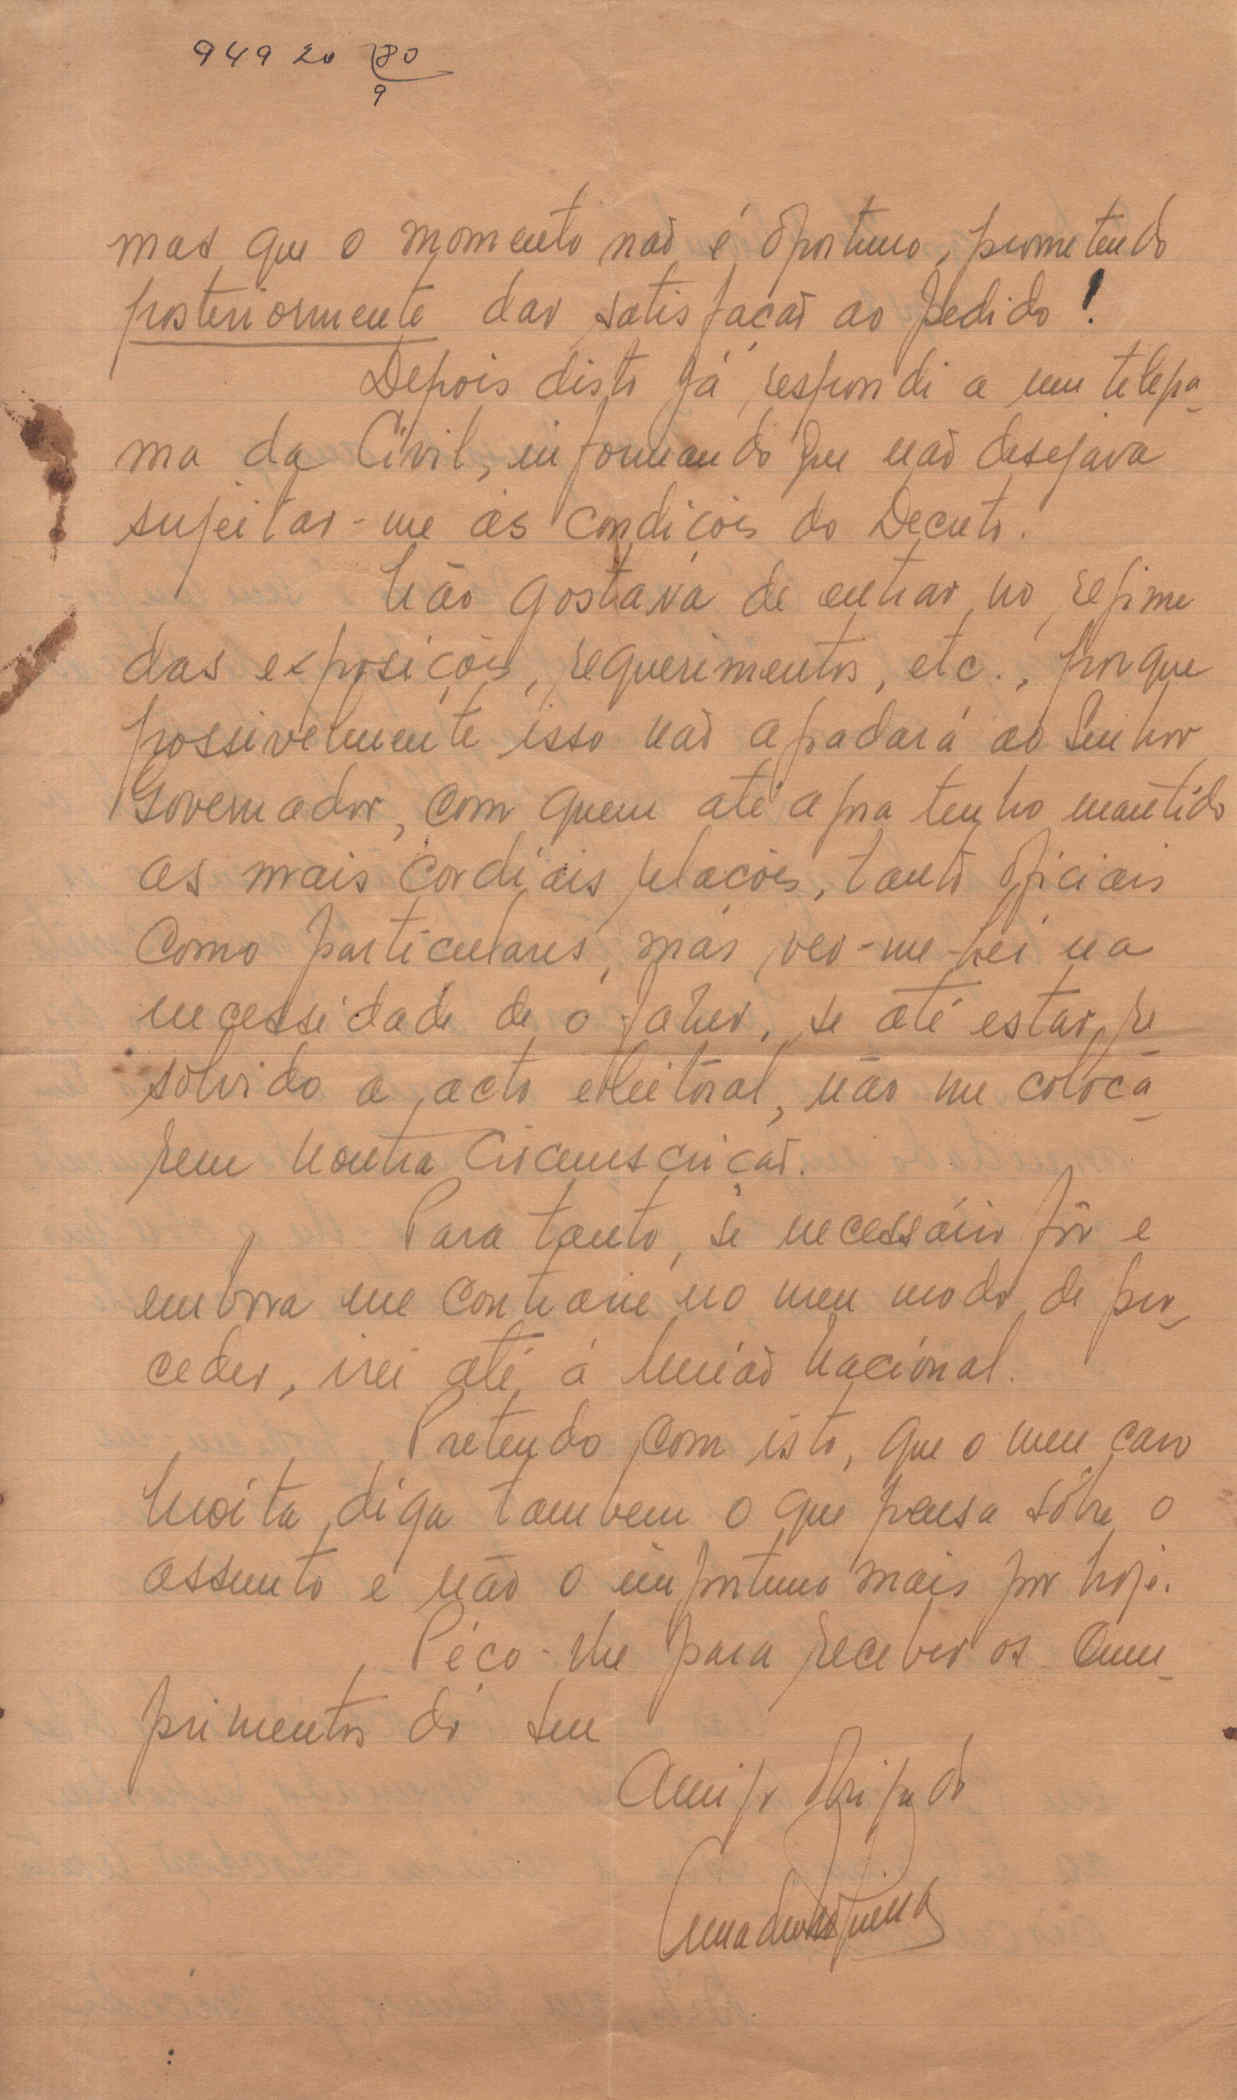 949 20 80
9
mas que o momento não é oportuno, prometendo
posteriormente dar satisfação ao pedido!
Depois disto já respondi a um telegra-
ma da Civil, informando que não desejava
sujeitar-me às condições do Decreto.
Não gostava de entrar no regime
das exposições, requerimentos, etc., porque
possivelmente isso não agradará ao Senhor
Governador, com quem até agora tenho mantido
as mais cordiais relações, tanto oficiais
como particulares, mas ver-me-hei na
necessidade de o fazer, se até estar re
solvido o acto eleitoral, não me coloca-
rem noutra Circunscrição.
Para tanto, se necessário fôr e
embora me contrarie no meu modo de pro-
ceder, irei até á União Nacional.
Pretendo com isto, que o meu caro
Moita diga tambem o que pensa sôbre o
assunto e não o importuno mais por hoje.
Péço-lhe para receber os Cum-
primentos do seu
Amigo Obrigado